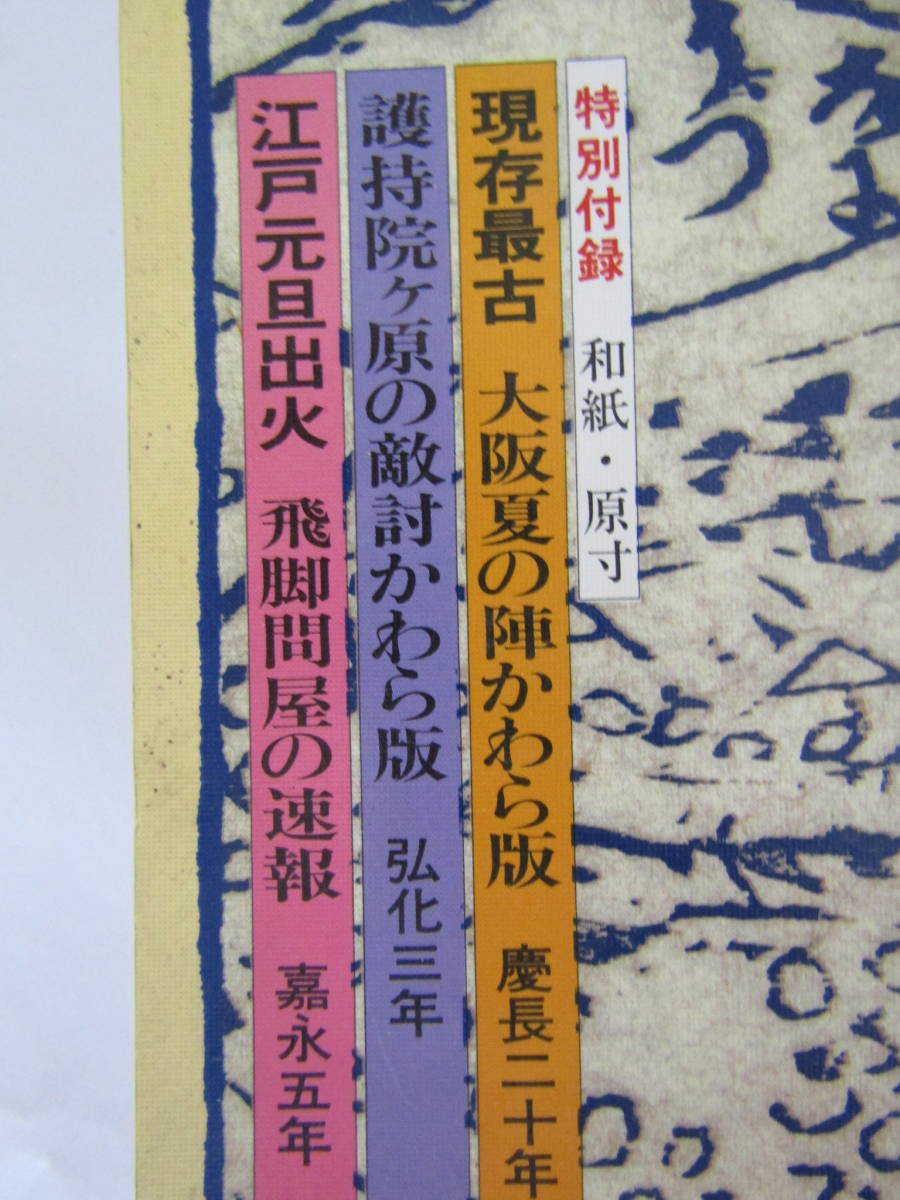 特別付録 和紙・原寸
現存最古 大阪夏の陣かわら版 慶長二十年
護持院ヶ原の敵討かわら版 弘化三年
江戸元旦出火 飛脚問屋の速報 嘉永五年